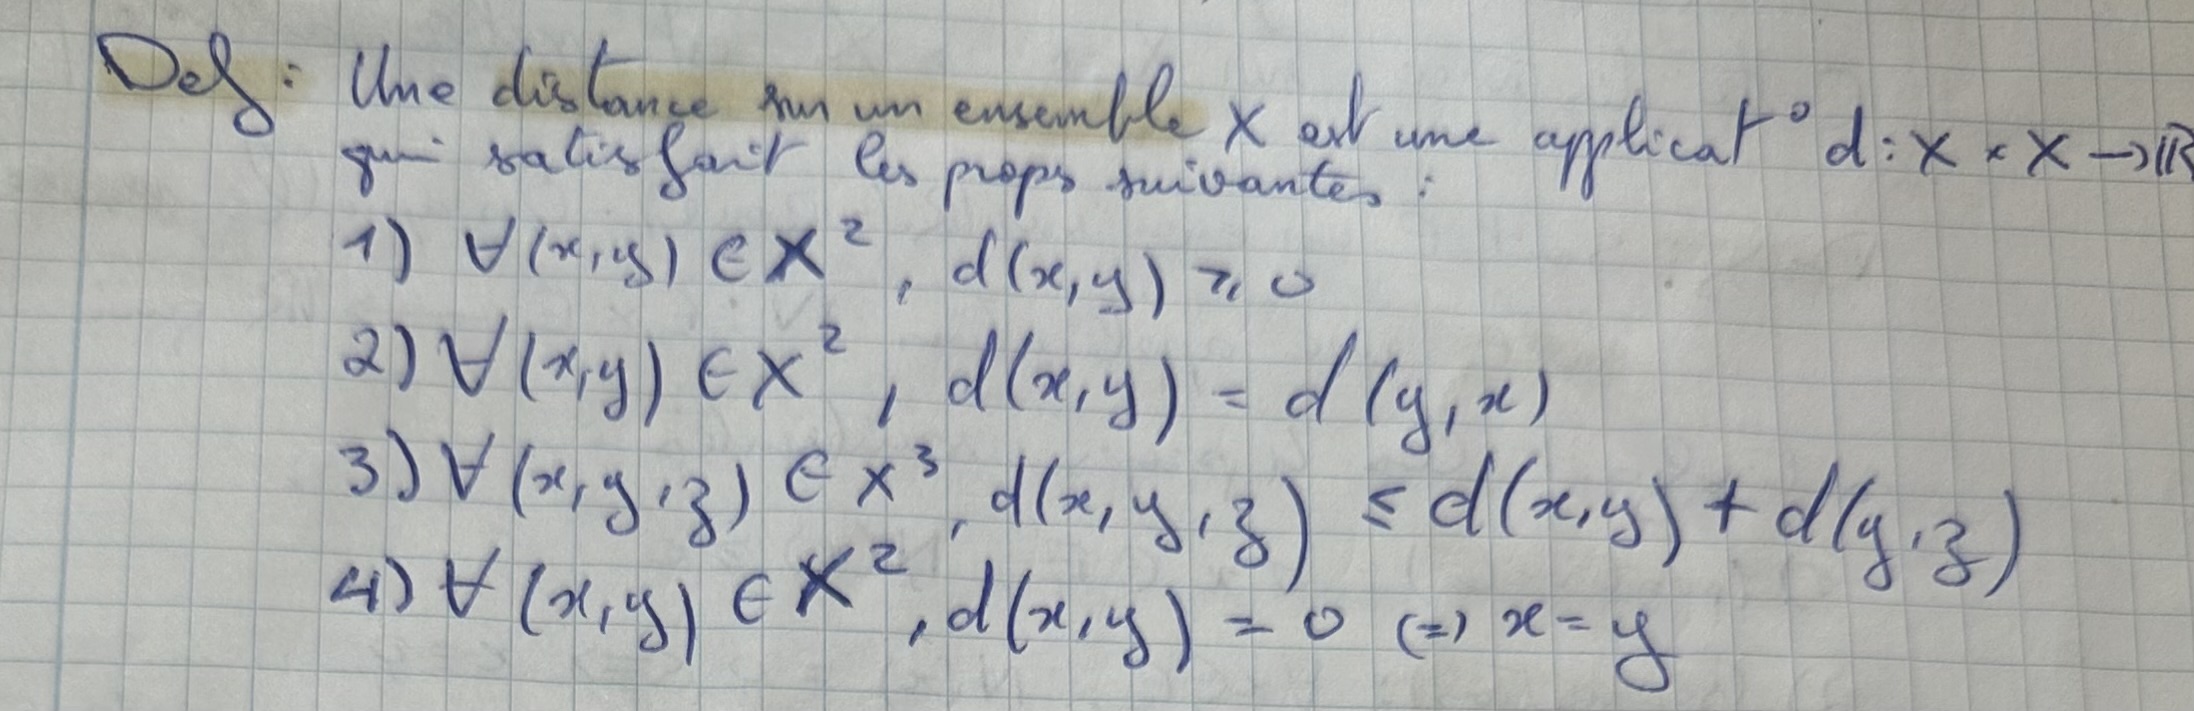 Def : Une distance sur un ensemble X est une applicat° d : X × X → ℝ
qui satisfait les props suivantes :
1) ∀(x,y) ∈ X², d(x,y) ⩾ 0
2) ∀(x,y) ∈ X², d(x,y) = d(y,x)
3) ∀(x,y,z) ∈ X³, d(x,y,z) ≤ d(x,y) + d(y,z)
4) ∀(x,y) ∈ X², d(x,y) = 0 (=) x = y